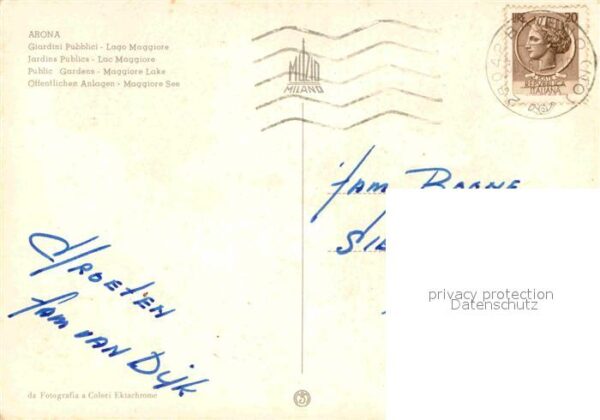 ARONA
Giardini Pubblici - Lago Maggiore
Jardins Publics - Lac Maggiore
Public Gardens - Maggiore Lake
Öffentlichen Anlagen - Maggiore See
MILANO
LIRE 20
REPUBBLICA
ITALIANA
Fam
Groeten
fam van Dijk
privacy protection
Datenschutz
da Fotografia a Colori Ektachrome